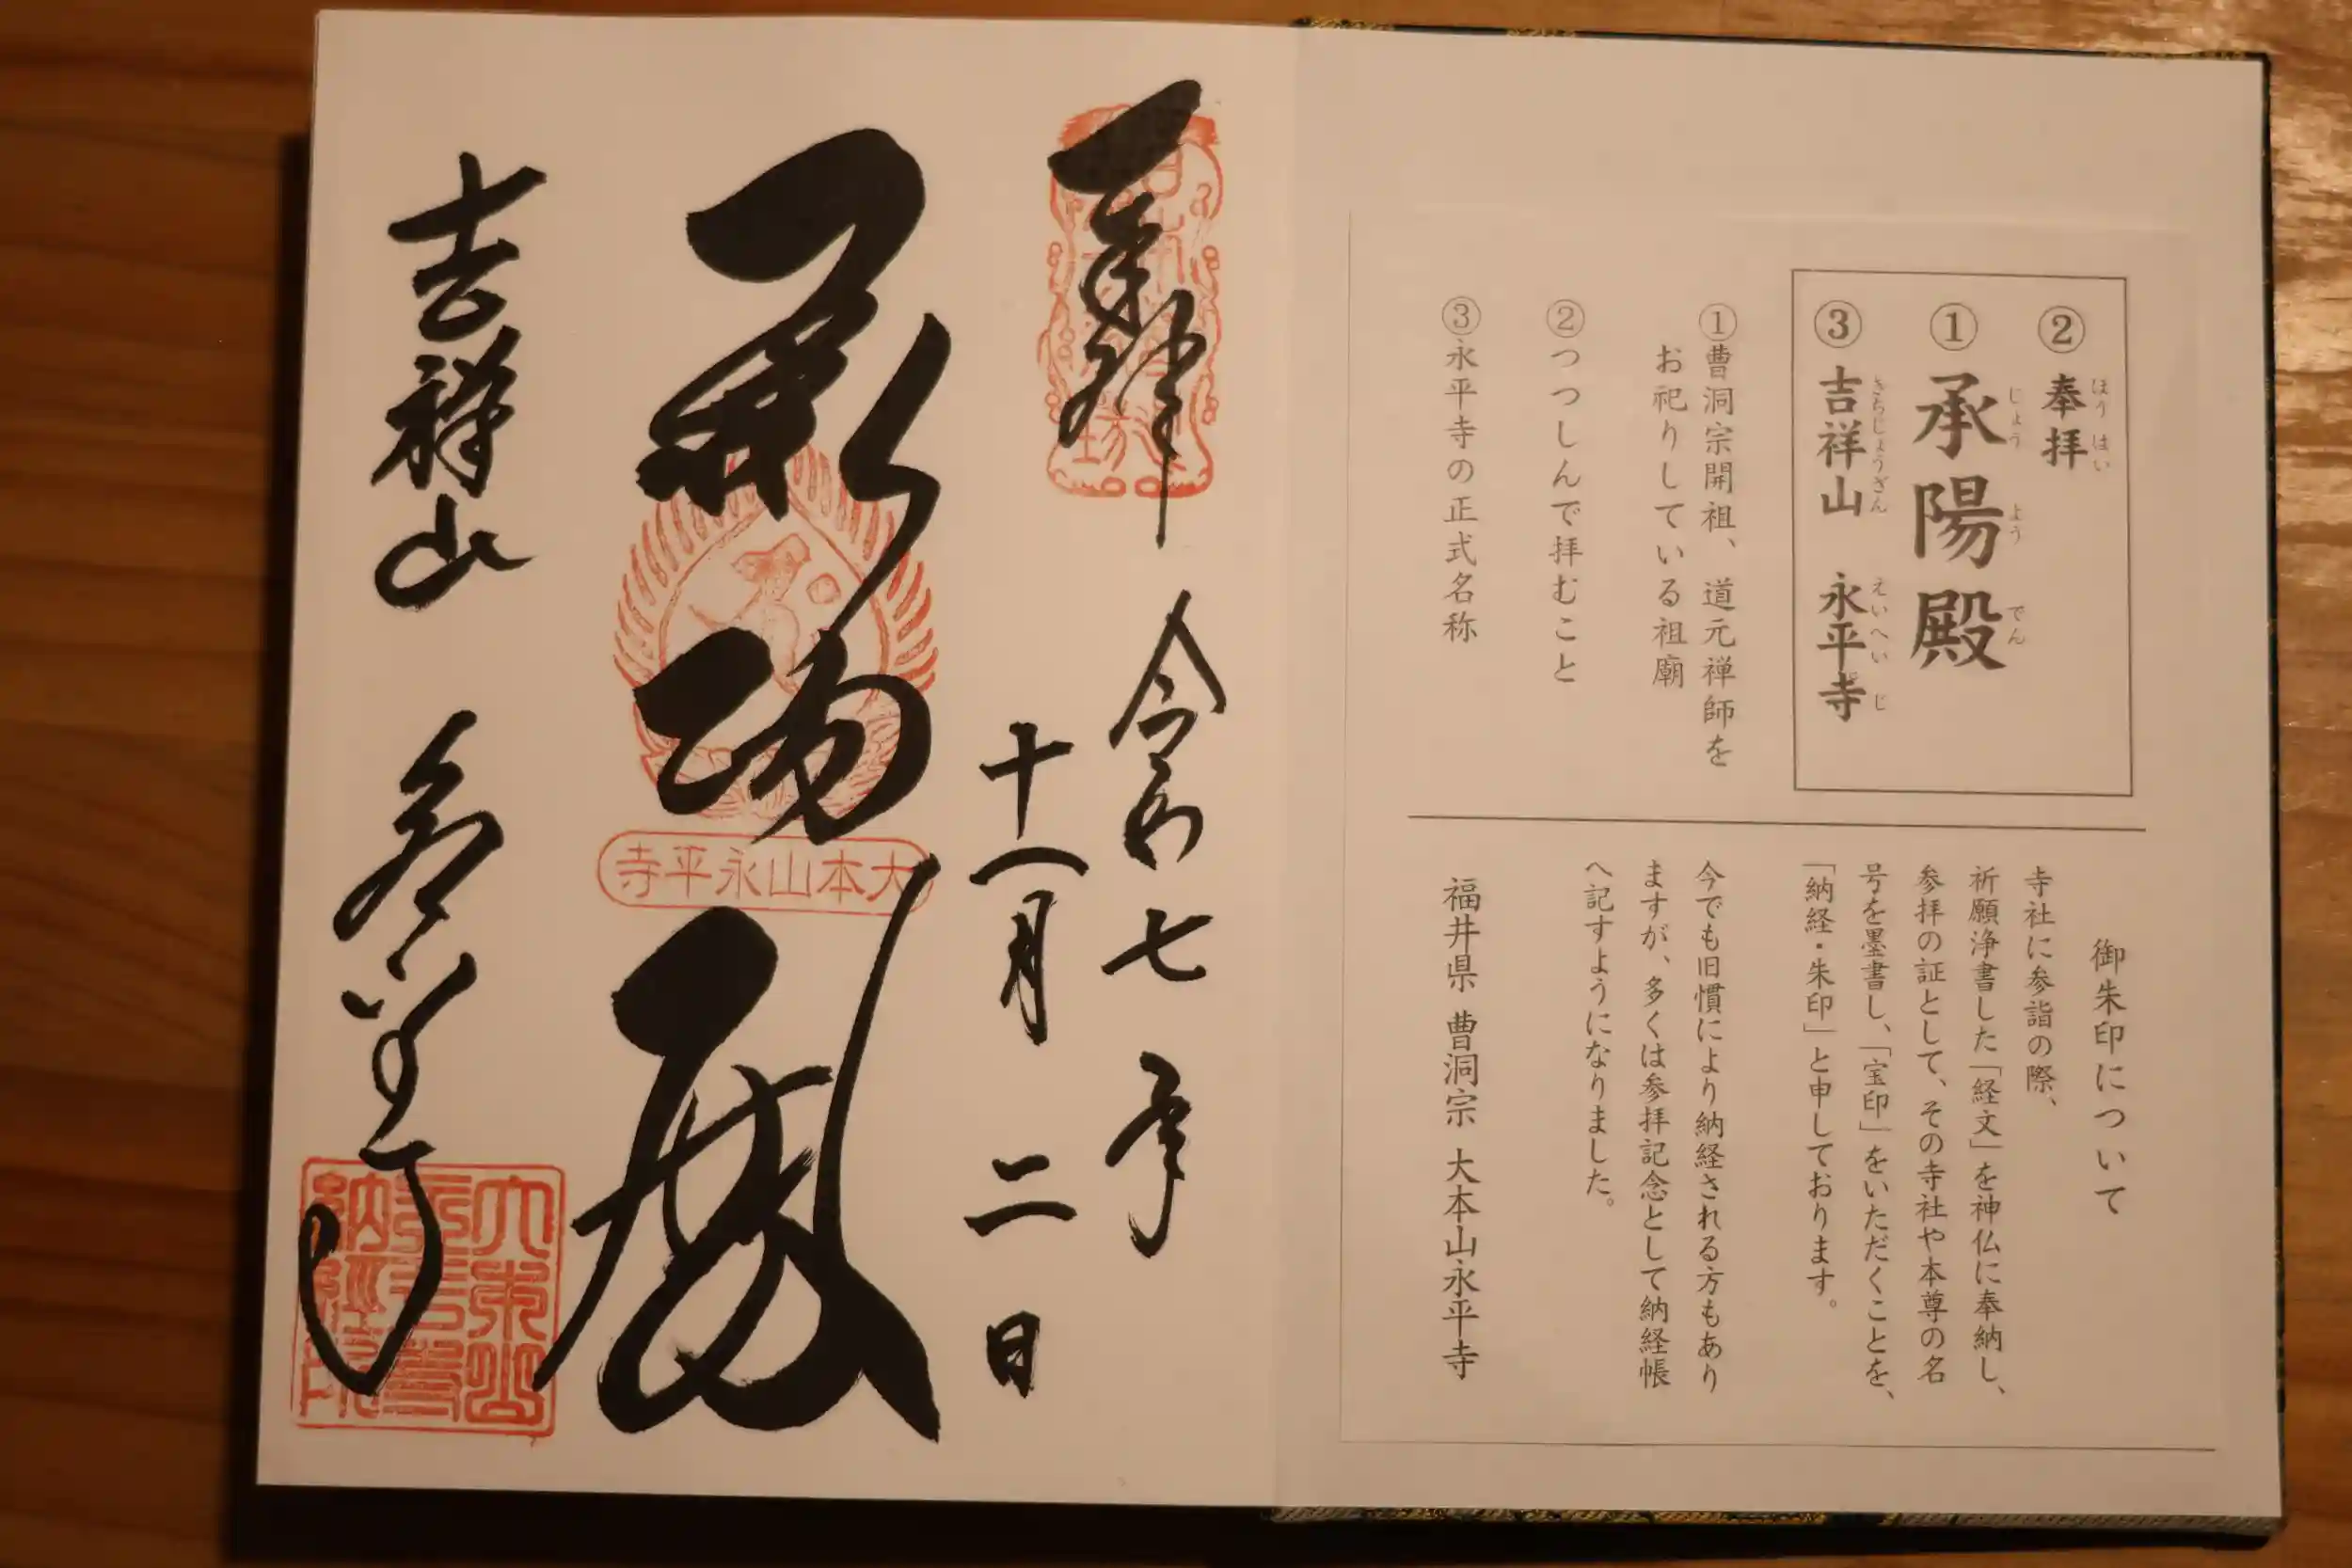 ほう はい
② 奉拝
じょう よう でん
① 承陽殿
きちじょうざん えいへいじ
③ 吉祥山 永平寺
①曹洞宗開祖、道元禅師を
お祀りしている祖廟
②つつしんで拝むこと
③永平寺の正式名称
御朱印について
寺社に参詣の際、
祈願浄書した「経文」を神仏に奉納し、
参拝の証として、その寺社や本尊の名
号を墨書し、「宝印」をいただくことを、
「納経・朱印」と申しております。
今でも旧慣により納経される方もあり
ますが、多くは参拝記念として納経帳
へ記すようになりました。
福井県 曹洞宗 大本山永平寺
奉拝
令和七年
十一月二日
承陽殿
大本山永平寺
吉祥山 永平寺